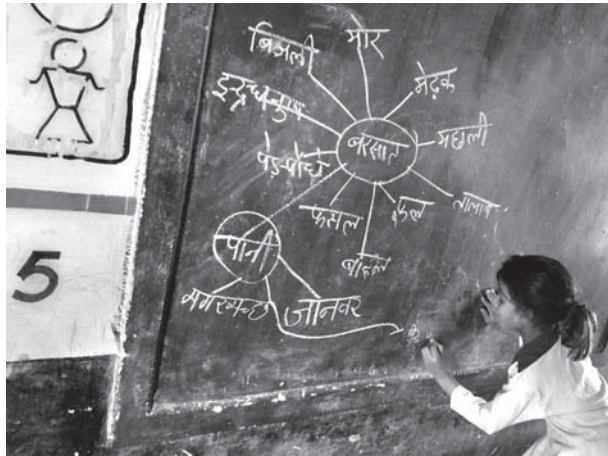 मोर
बिजली
मेढ़क
इन्द्रधनुष
बरसात
मछली
पेड़-पौधे
तालाब
फसल
फूल
पानी
बादल
मगरमच्छ
जानवर
5